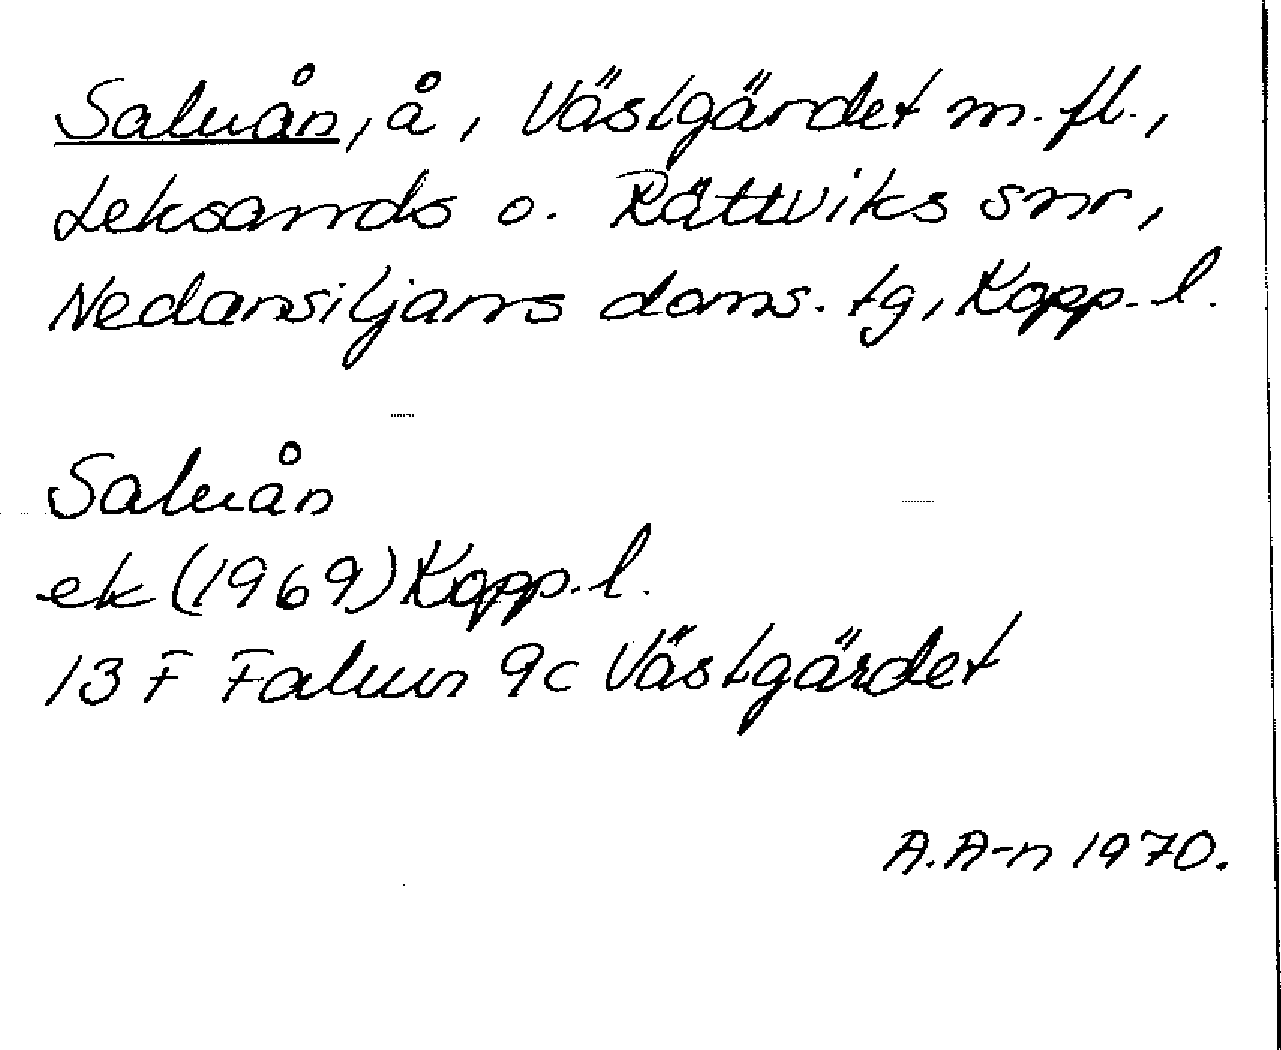 Saluån, å, Västgärdet m.fl.,
Leksands o. Rättviks snr,
Nedansiljans doms. tg, Kopp. l.
Saluån
ek (1969) Kopp. l.
13 F Falun 9c Västgärdet
A. A-n 1970.